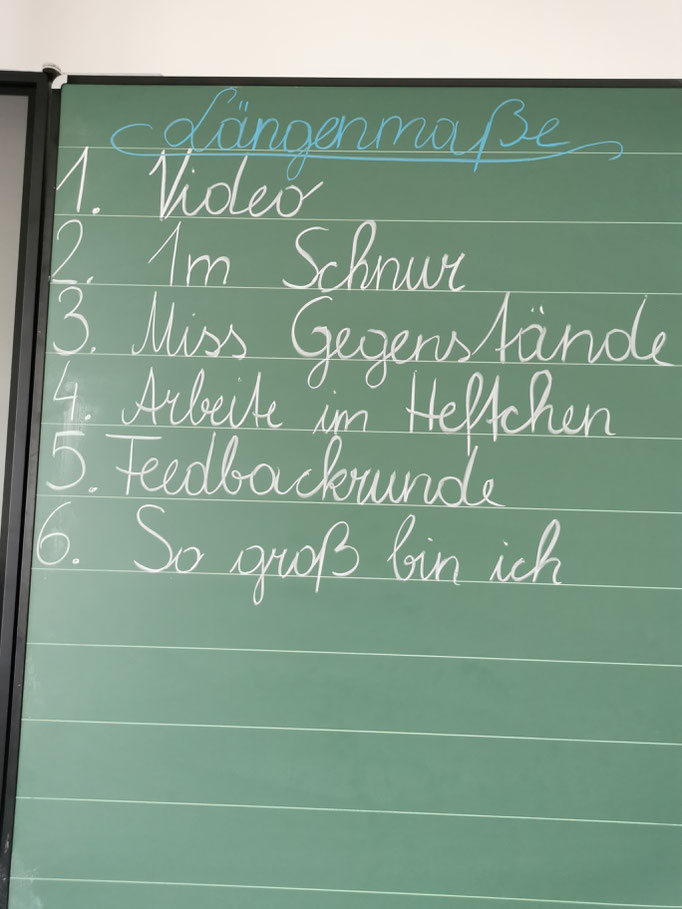 Längenmaße
1. Video
2. 1m Schnur
3. Miss Gegenstände
4. Arbeite im Heftchen
5. Feedbackrunde
6. So groß bin ich